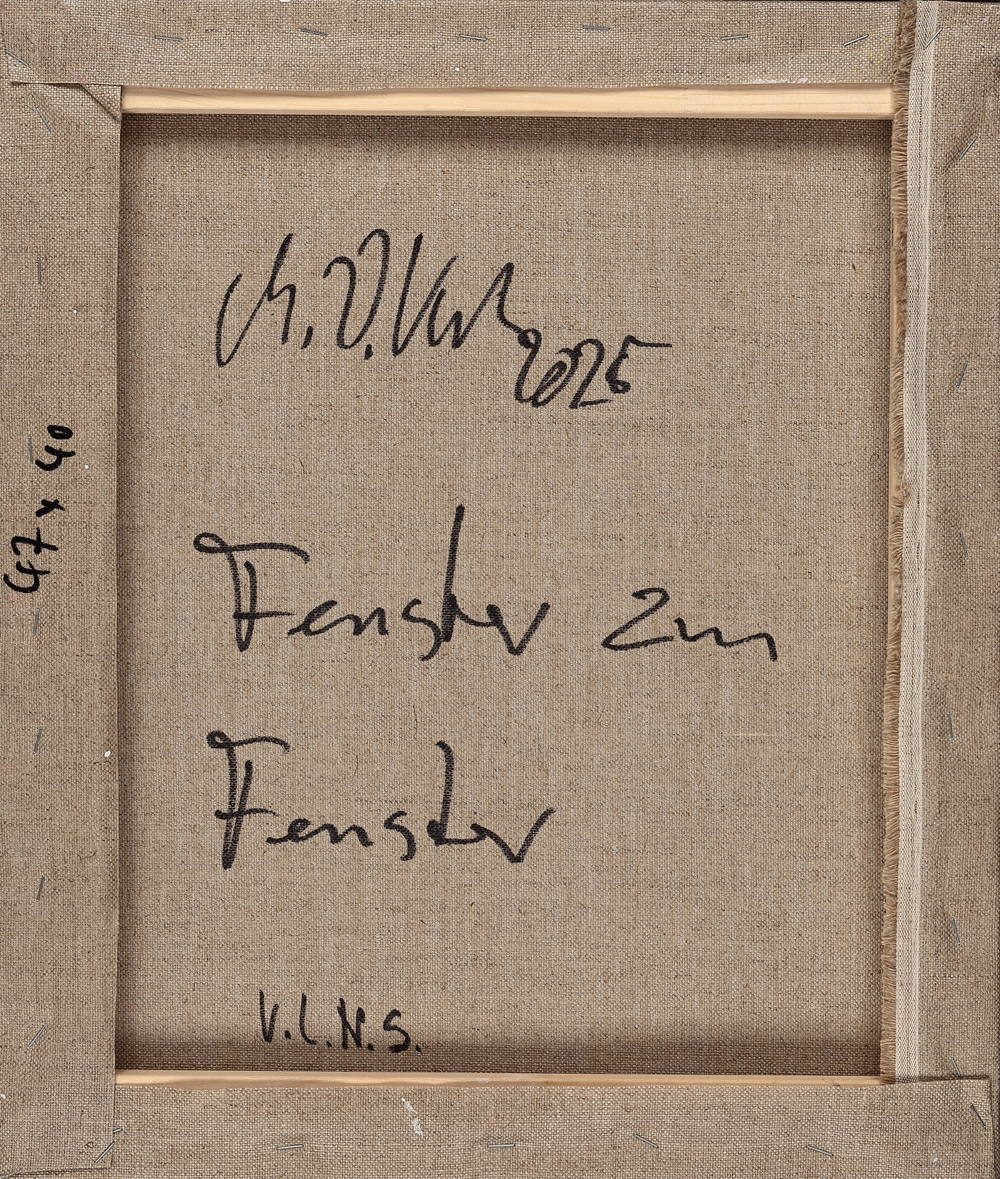 2025
Fenster zum
Fenster
V.L.N.S.
47 x 40